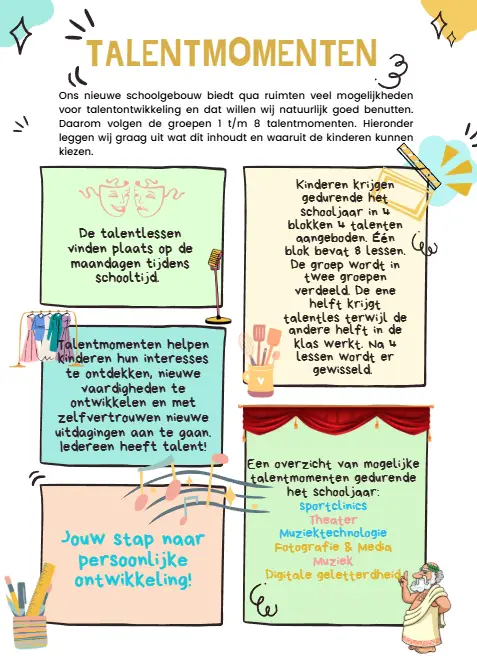 TALENTMOMENTEN
Ons nieuwe schoolgebouw biedt qua ruimten veel mogelijkheden
voor talentontwikkeling en dat willen wij natuurlijk goed benutten.
Daarom volgen de groepen 1 t/m 8 talentmomenten. Hieronder
leggen wij graag uit wat dit inhoudt en waaruit de kinderen kunnen
kiezen.
De talentlessen
vinden plaats op de
maandagen tijdens
schooltijd.
Kinderen krijgen
gedurende het
schooljaar in 4
blokken 4 talenten
aangeboden. Één
blok bevat 8 lessen.
De groep wordt in
twee groepen
verdeeld. De ene
helft krijgt
talentles terwijl de
andere helft in de
klas werkt. Na 4
lessen wordt er
gewisseld.
Talentmomenten helpen
kinderen hun interesses
te ontdekken, nieuwe
vaardigheden te
ontwikkelen en met
zelfvertrouwen nieuwe
uitdagingen aan te gaan.
Iedereen heeft talent!
Een overzicht van mogelijke
talentmomenten gedurende
het schooljaar:
Sportclinics
Theater
Muziektechnologie
Fotografie & Media
Muziek
Digitale geletterdheid
Jouw stap naar
persoonlijke
ontwikkeling!